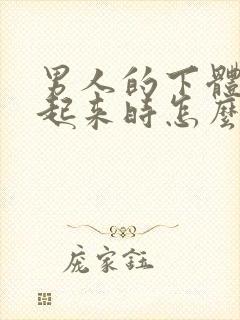 男人的下體
起來時怎麼
龐家鈺